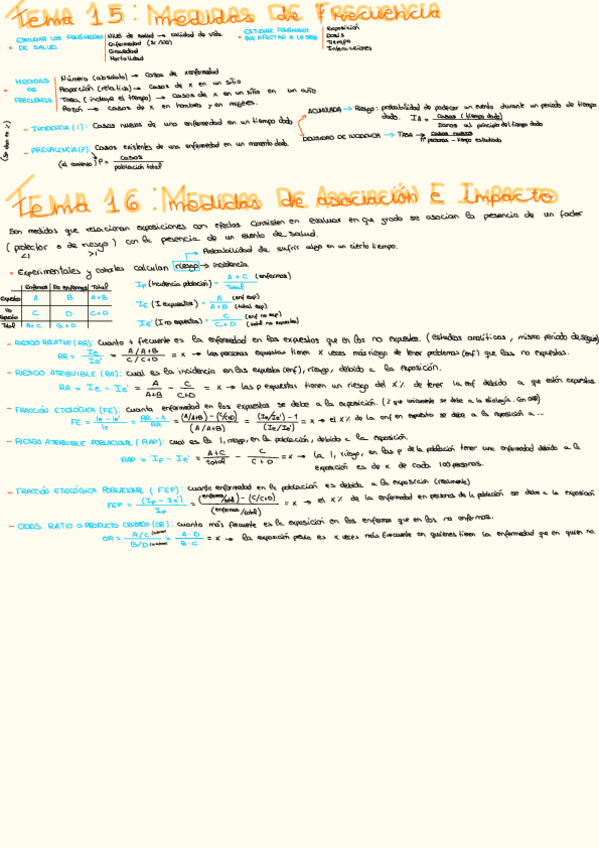 Tema 15: Medidas de Frecuencia
ESTUDIAR LOS FENÓMENOS DE SALUD
Nivel de salud → calidad de vida
Enfermedad
Gravedad
Mortalidad
ESTUDIAR FENÓMENOS QUE AFECTAN A LA
Exposición
Dosis
Tiempo
Interacciones
MEDIDAS DE FRECUENCIA
Número (absoluto) → casos de enfermedad
Proporción (relativa) → casos de x en un sitio
Tasa (incluye el tiempo) → casos de x en un sitio en un año
Razón → casos de x en hombres y en mujeres.
(se dan en %)
- INCIDENCIA (I): Casos nuevos de una enfermedad en un tiempo dado
ACUMULADA → Riesgo: probabilidad de padecer un evento durante un periodo de tiempo dado. IA = casos (tiempo dado) / sanos al principio del tiempo dado
DENSIDAD DE INCIDENCIA → TASA → casos nuevos / nº personas - tiempo estudiado
- PREVALENCIA (P): Casos existentes de una enfermedad en un momento dado.
P = casos / población total
Tema 16: Medidas de asociación e Impacto
Son medidas que relacionan exposiciones con efectos. Consisten en evaluar en que grado se asocian la presencia de un factor
(protector o de riesgo) con la presencia de un evento de salud.
<1 >1
→ Probabilidad de sufrir algo en un cierto tiempo.
• Experimentales y cohortes calculan riesgo → incidencia
Enfermos No enfermos Total
Expuestos A B A+B
No expuestos C D C+D
Total A+C B+D
Ip (Incidencia población) = A+C (enfermos) / Total
Ie (I expuestos) = A (enf exp) / A+B (total exp)
Ie' (I no expuestos) = C (enf no exp) / C+D (total no expuestos)
- RIESGO RELATIVO (RR): cuanto + frecuente es la enfermedad en los expuestos que en los no expuestos. (estudios analíticos, mismo periodo de segui)
RR = Ie / Ie' = A/A+B / C/C+D = x → las personas expuestas tienen x veces más riesgo de tener problemas (enf) que las no expuestas.
- RIESGO ATRIBUIBLE (RA): cual es la incidencia en los expuestos (enf), riesgo, debido a la exposición.
RA = Ie - Ie' = A / A+B - C / C+D = x → las p expuestas tienen un riesgo del x% de tener la enf debido a que están expuestas.
- FRACCIÓN ETIOLÓGICA (FE): cuanta enfermedad en los expuestos se debe a la exposición.
FE = Ie - Ie' / Ie = RR - 1 / RR = (A/A+B) - (C/C+D) / (A/A+B) = (Ie/Ie') - 1 / (Ie/Ie') = x → el x% de la enf en expuesto se debe a la exposición a ...
- RIESGO ATRIBUIBLE POBLACIONAL (RAP): cual es la I, riesgo, en la población, debido a la exposición.
RAP = Ip - Ie' = A+C / total - C / C+D = x → la I, riesgo, en las p de la población tener una enfermedad debido a la
exposición es de x de cada 100 personas.
- FRACCIÓN ETIOLÓGICA POBLACIONAL (FEP): cuanta enfermedad en la población es debida a la exposición (realmente)
FEP = (Ip - Ie') / Ip = (enfermos/total) - (C/C+D) / (enfermos/total) = x → el x% de la enfermedad en personas de la población se debe a la exposición
- ODDS RATIO O PRODUCTO CRUZADO (OR): cuanto más frecuente es la exposición en los enfermos que en los no enfermos.
OR = A/C / B/D = A·D / B·C = x → la exposición es x veces más frecuente en quienes tienen la enfermedad que en quien no.